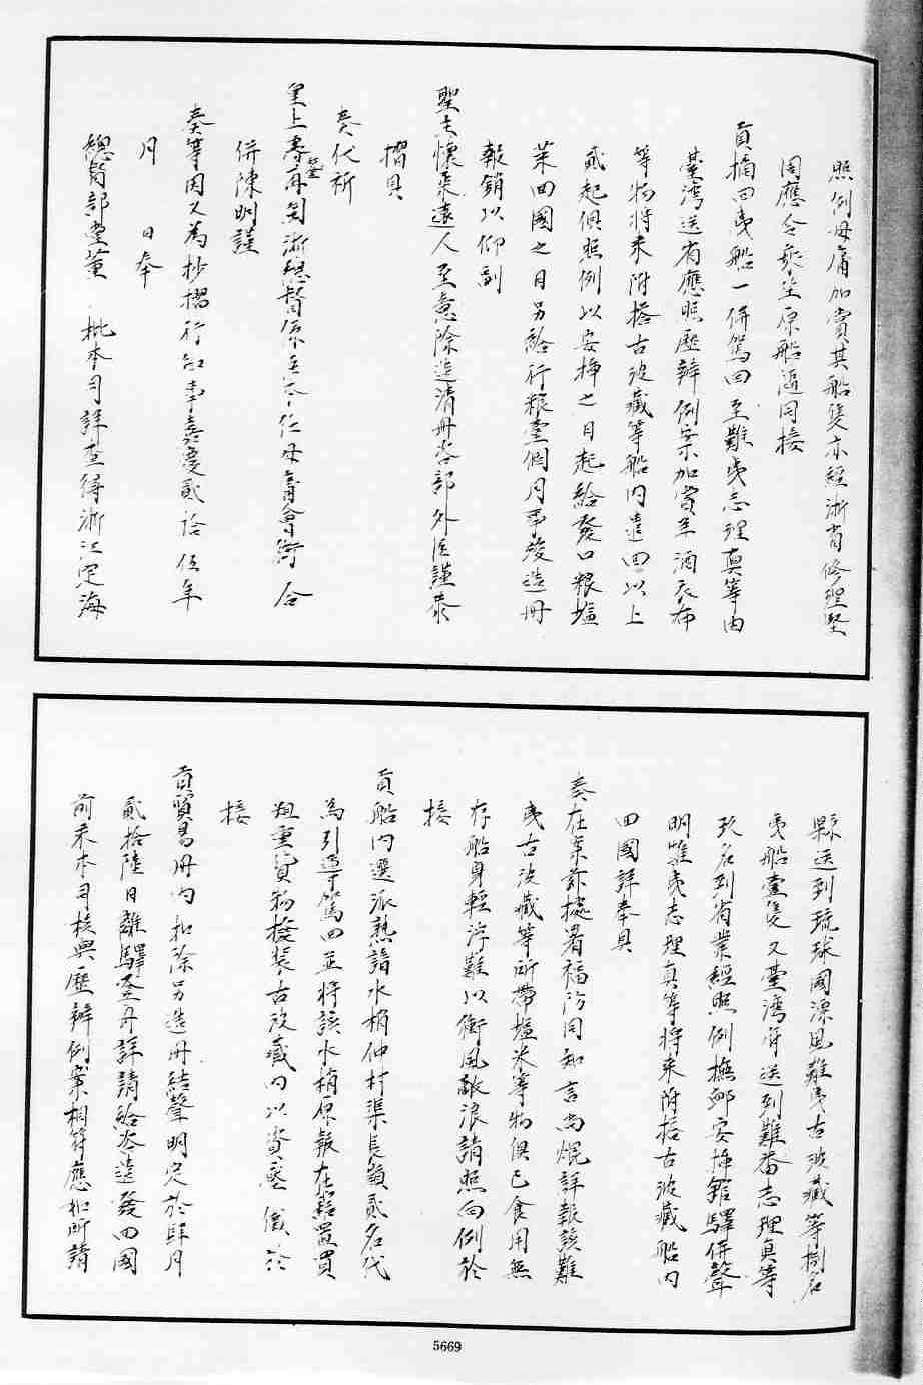 照例毋庸加賞其船隻亦經浙省修理堅
固應令乘坐原船遇同接
貢摘回夷船一併駕回至難夷志理真等由
臺灣送省應照歷辦例案加賞羊酒衣布
等物將来附搭古波藏等船内遣回以上
貳起俱照例以安插之日起給發口粮塩
菜回國之日另給行粮壹個月事竣造冊
報銷以仰副
聖主懷柔遠人至意除造清冊咨部外臣謹恭
摺具
奏伏祈
皇上睿鑒再閩浙總督係臣本任毋庸會銜合
併陳明謹
奏等因又為抄摺行知事嘉慶貳拾伍年
月　　日奉
總督部堂董　批本司詳查得浙江定海
縣送到琉球國漂風難夷古波藏等名
夷船壹隻又臺灣府送到難番志理真等
玖名到省業經照例撫卹安插館驛併聲
明難夷志理真等將来附搭古波藏船内
回國詳奉具
奏在案茲據署福防同知言尚焜詳報該難
夷古波藏等所帶塩米等物俱已食用無
存船身輕浮難以衝風破浪請照向例於
接
貢船内選派熟諳水梢仲村渠長領貳名代
為引導駕回並將該水梢原報在籍置買
粗重貨物撥裝古波藏内以資壓儎於
接
貢貿易冊内扣除另造冊結聲明定於肆月
貳拾陸日離驛登舟詳請給咨遣發回國
前来本司核與歷辦例案相符應如所請
5669